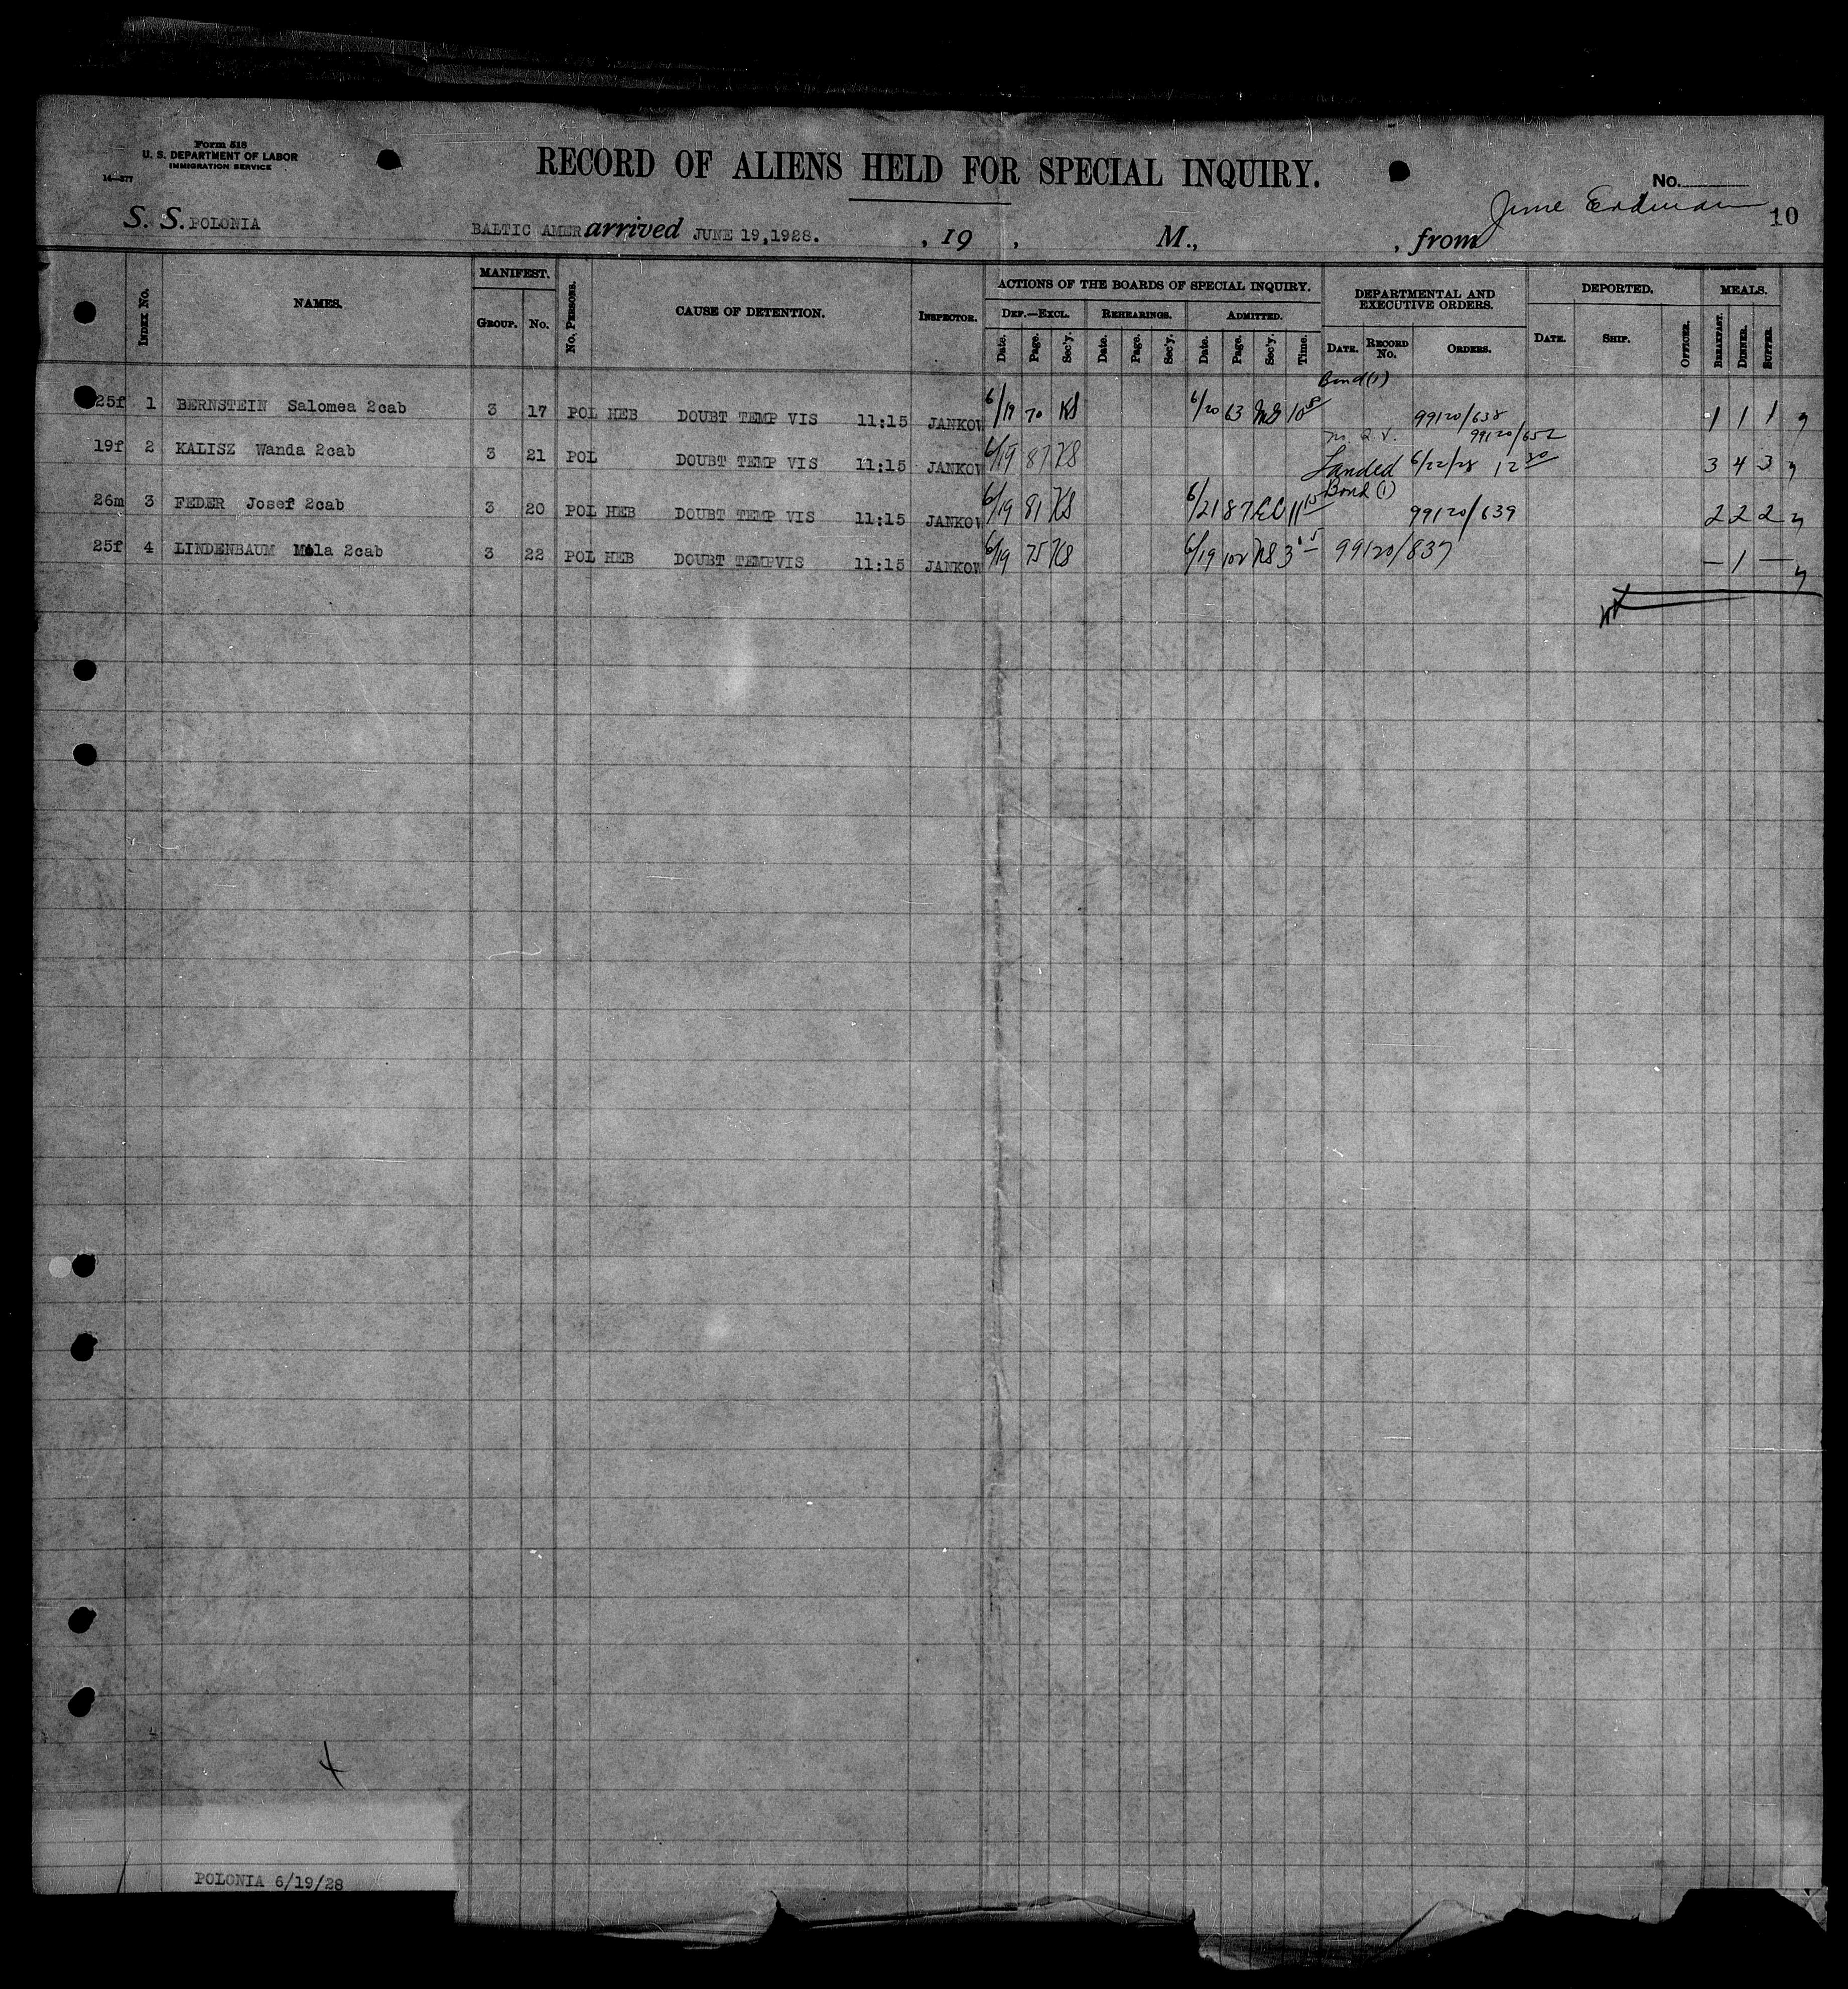 Form 518
U. S. DEPARTMENT OF LABOR
IMMIGRATION SERVICE
14—377
RECORD OF ALIENS HELD FOR SPECIAL INQUIRY.
No.
10
S. S. POLONIA BALTIC AMER arrived JUNE 19, 1928. , 19 , M., , from
INDEX No. NAMES. MANIFEST. GROUP. No. No. PERSONS. CAUSE OF DETENTION. INSPECTOR. ACTIONS OF THE BOARDS OF SPECIAL INQUIRY. DEF.—EXCL. Date. Page. Sec'y. REHEARINGS. Date. Page. Sec'y. ADMITTED. Date. Page. Sec'y. Time. DEPARTMENTAL AND EXECUTIVE ORDERS. DATE. RECORD No. ORDERS. DEPORTED. DATE. SHIP. OFFICER. MEALS. BREAKFAST. DINNER. SUPPER.
Bond (1)
25f 1 BERNSTEIN Salomea 2cab 3 17 POL HEB DOUBT TEMP VIS 11:15 JANKOW 6/19 70 KS 6/20 63 99120/638 1 1 1
99120/652
19f 2 KALISZ Wanda 2cab 3 21 POL DOUBT TEMP VIS 11:15 JANKOW 6/19 87 KS Landed 6/22/28 12 30 3 4 3
Bond (1)
26m 3 FEDER Josef 2cab 3 20 POL HEB DOUBT TEMP VIS 11:15 JANKOW 6/19 81 KS 6/21 87 EC 11 15 99120/639 2 2 2
25f 4 LINDENBAUM Mala 2cab 3 22 POL HEB DOUBT TEMPVIS 11:15 JANKOW 6/19 75 KS 6/19 102 KS 99120/837 — 1 —
POLONIA 6/19/28